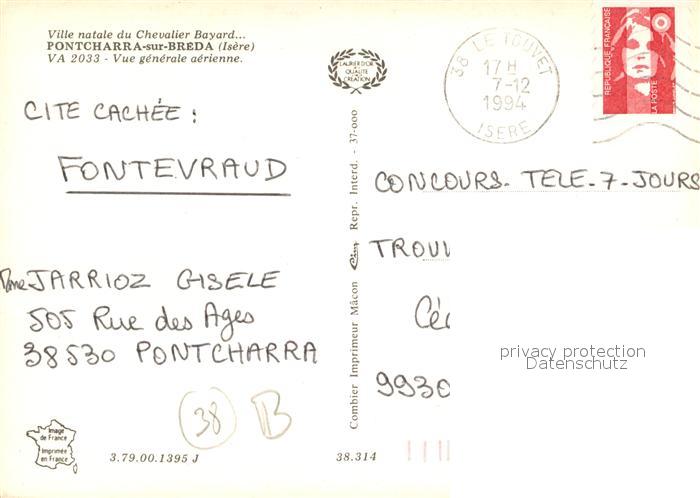 Ville natale du Chevalier Bayard...
PONTCHARRA-sur-BREDA (Isère)
VA 2033 - Vue générale aérienne.
LAURIER D'OR
QUALITÉ
CRÉATION
38 LE TOUVET
17 H
7-12
1994
ISERE
REPUBLIQUE FRANÇAISE
LA POSTE
CITE CACHÉE :
FONTEVRAUD
CONCOURS. TELE-7-JOURS
TROUV
Mme JARRIOZ GISELE
505 Rue des Ages
38530 PONTCHARRA
Cé
9930
privacy protection
Datenschutz
Combier Imprimeur Mâcon
Repr. Interd. - 37-000
38 B
Image
de France
Imprimée
en France
3.79.00.1395 J
38.314